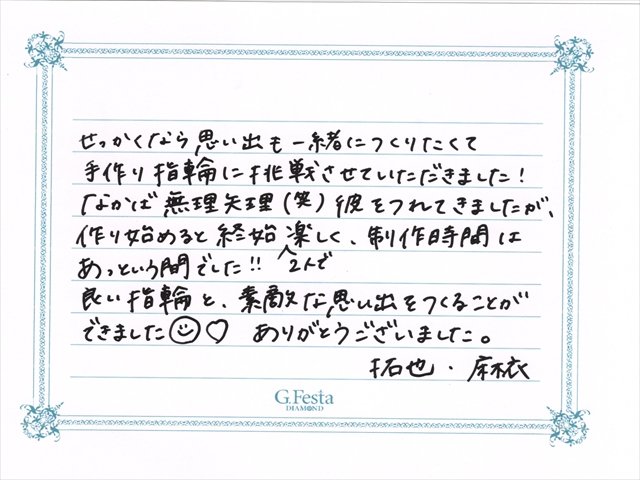 せっかくなら思い出も一緒につくりたくて
手作り指輪に挑戦させていただきました!
なかば無理矢理(笑)彼をつれてきましたが、
作り始めると終始2人で楽しく、制作時間は
あっという間でした!!
良い指輪と、素敵な思い出をつくることが
できました☺♡ ありがとうございました。
拓也・麻衣
G.Festa
DIAMOND